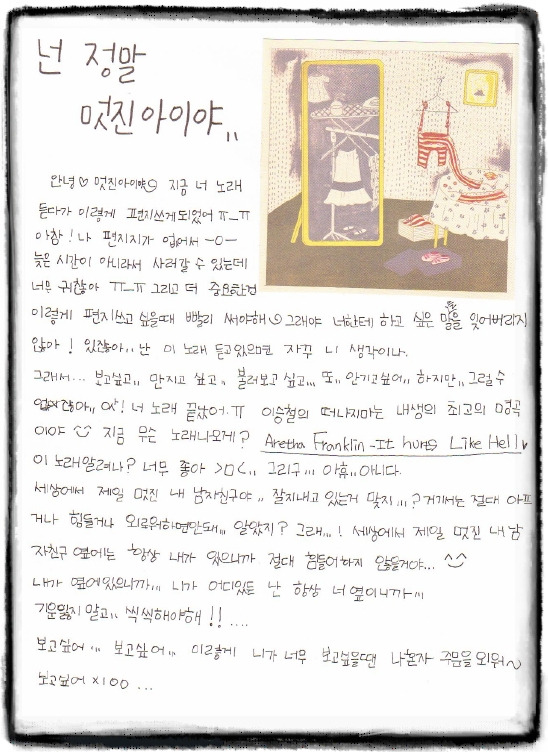 넌 정말
멋진아이야,,
안녕♡ 멋진아이야 지금 너 노래
듣다가 이렇게 편지쓰게되었어 ㅠ_ㅠ
아참! 나 편지지가 없어서 -ㅁ-
늦은 시간이 아니라서 사러갈 수 있는데
너무 귀찮아 ㅠ_ㅠ 그리고 더 중요한건
이렇게 편지쓰고 싶을때 빨리 써야해 그래야 너한테 하고 싶은 말을 잊어버리지
않아! 있잖아,, 난 이 노래 듣고있으면 자꾸 니 생각이나.
그래서... 보고싶고,, 만지고 싶고,, 불러보고 싶고,,, 또,, 안기고싶어,, 하지만,, 그럴수
없잖아,, 아! 너 노래 끝났어.ㅠ 이승철의 떠나지마는 내생의 최고의 명곡
이야 지금 무슨 노래나오게? Aretha Franklin-It hurts Like Hell♥
이 노래알려나? 너무 좋아 >ㅁ<,, 그리구,,, 아휴,, 아니다.
세상에서 제일 멋진 내 남자친구야,, 잘지내고 있는거 맞지,,,? 거기서는 절대 아프
거나 힘들거나 외로워하면안돼,,, 알았지? 그래,,,! 세상에서 제일 멋진 내 남
자친구 옆에는 항상 내가 있으니까 절대 힘들어하지 않을거야...
내가 옆에있으니까,,, 니가 어디있든 난 항상 너 옆이니까,,,
기운잃지 말고,, 씩씩해야해!! ....
보고싶어,,, 보고싶어,,, 이렇게 니가 너무 보고싶을땐 나혼자 주문을 외워~
보고싶어 ×100 ...